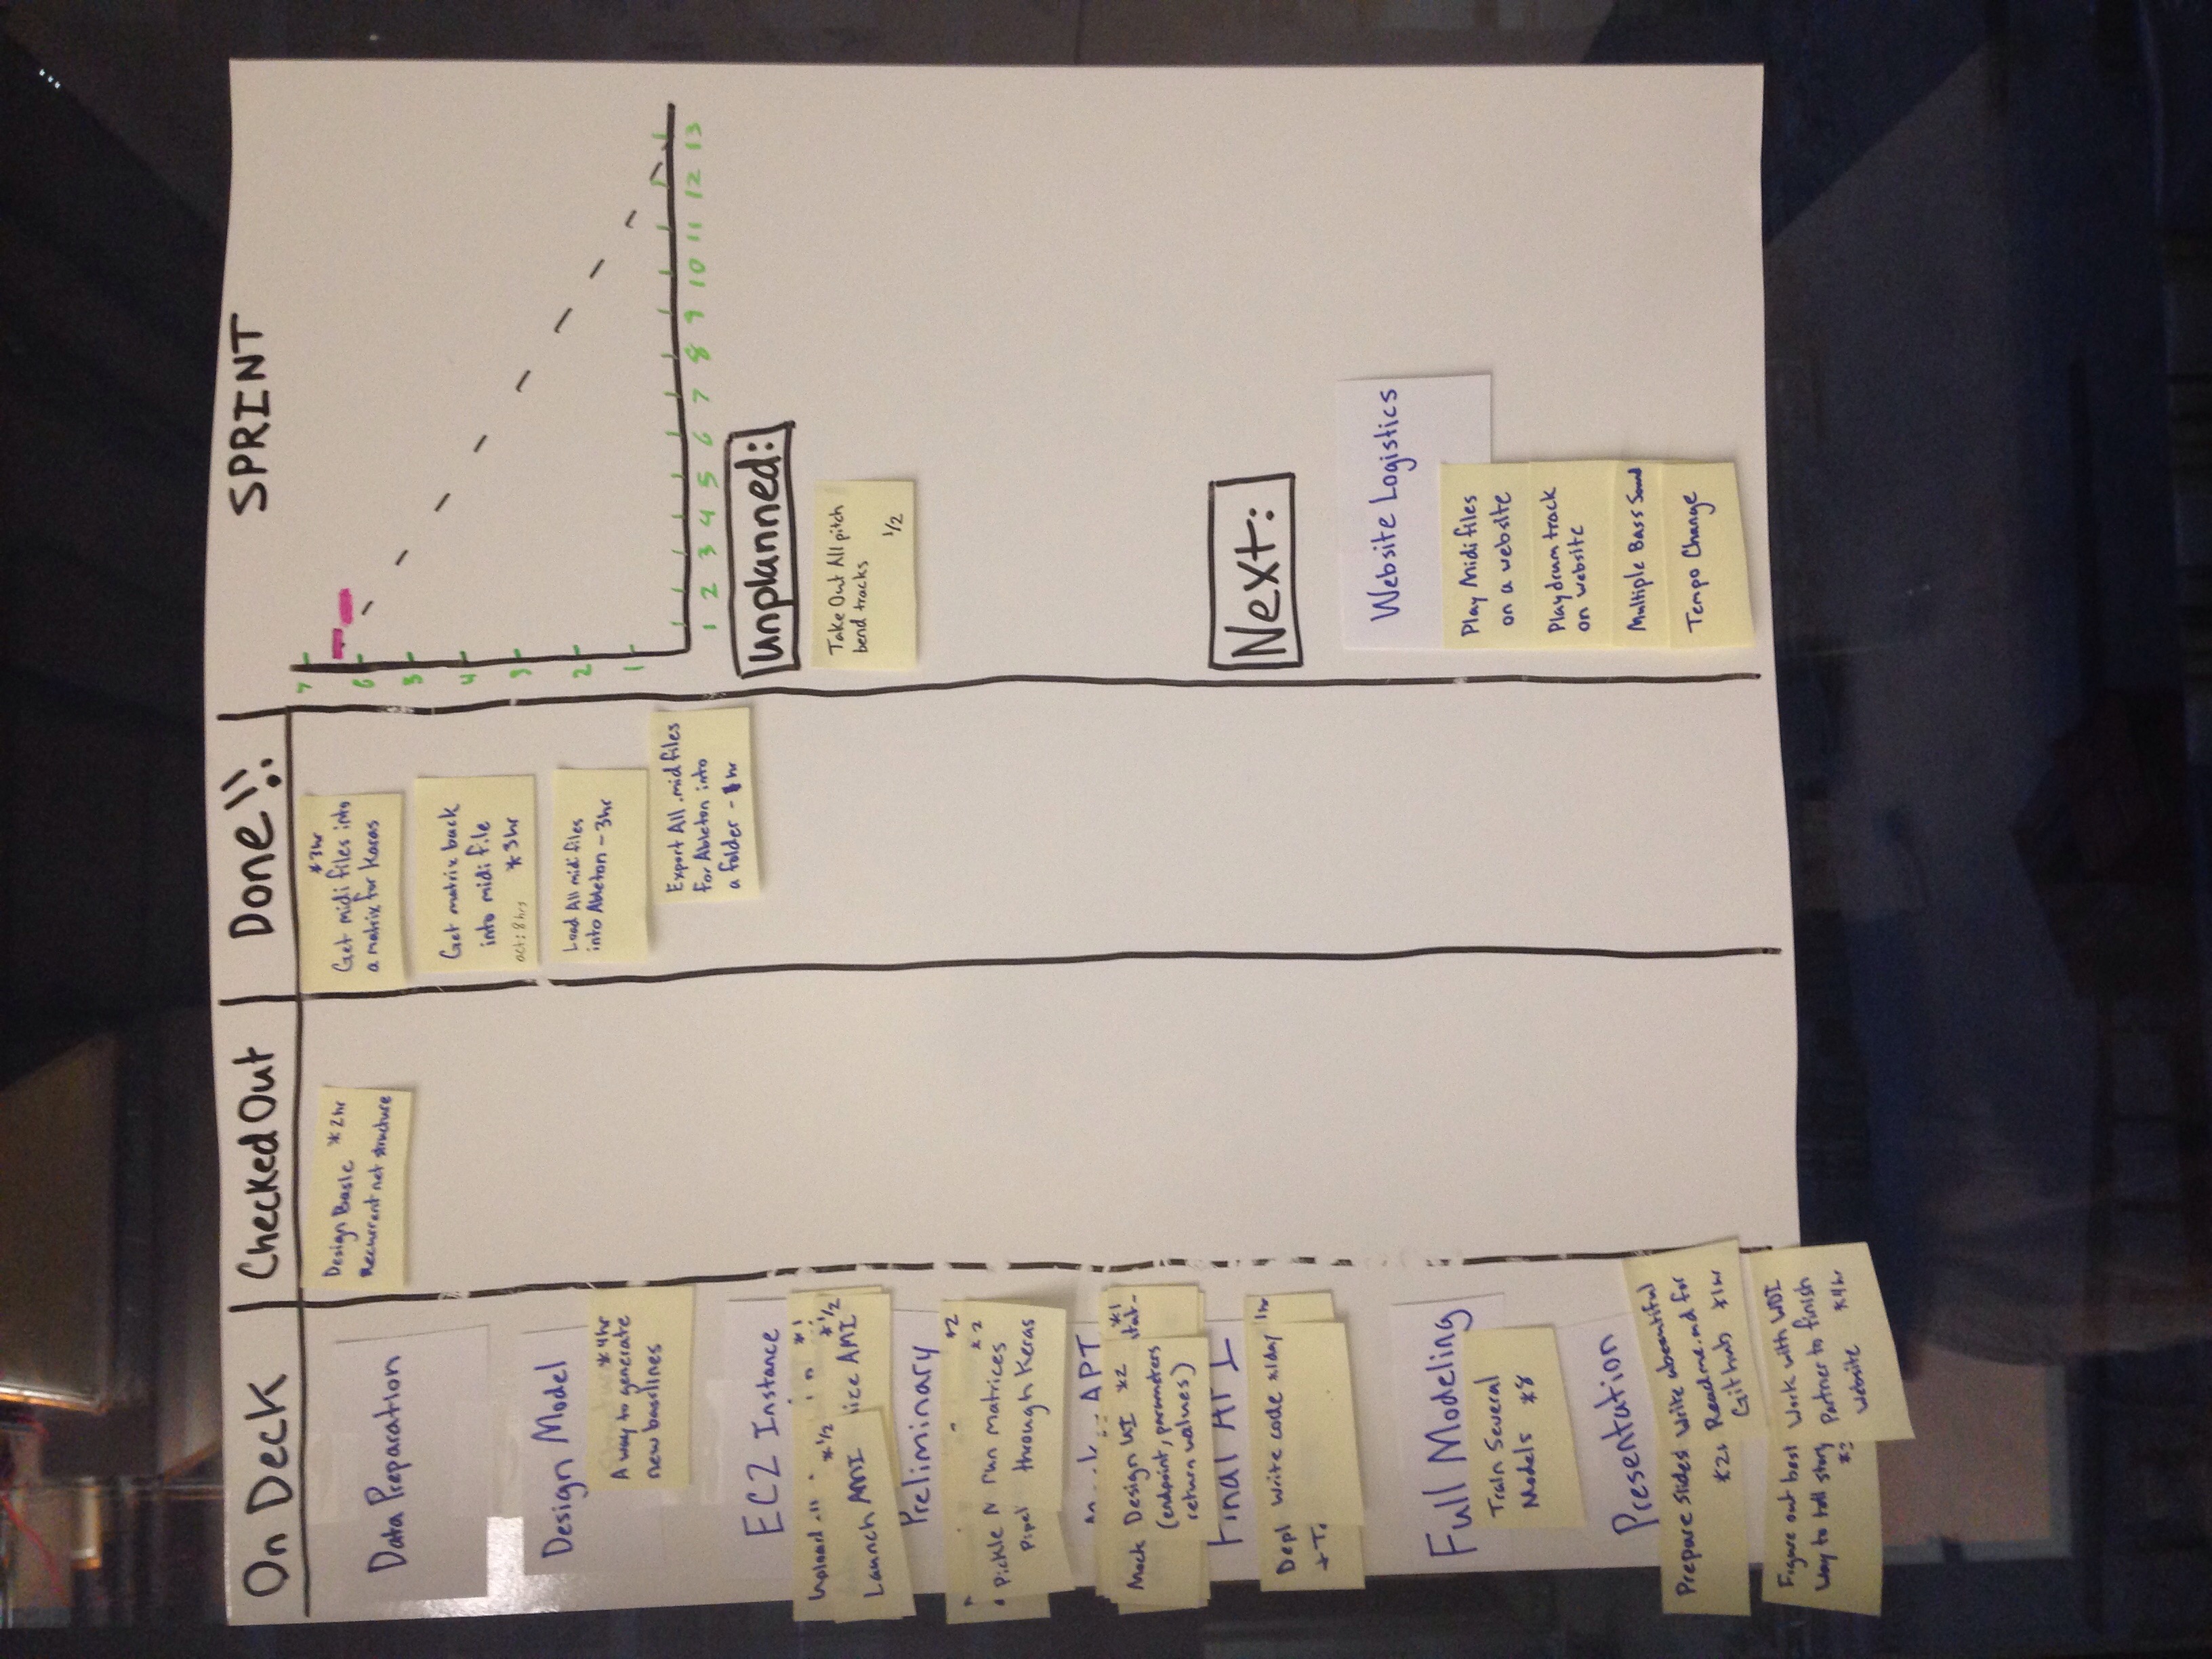 On Deck
Data Preparation
Design Model
*4hr
A way to generate
new basslines
EC2 Instance
Upload
*1
*1/2
*1/2
Launch AMI
AMI
Preliminary
*2
*2
Pickle
run matrices
through Keras
API
Mock
Design UI *2
*1
(endpoint, parameters
return values)
Final API
Write code *1day
1hr
Full Modeling
Train Several
Models *8
Presentation
Prepare slides
Write a beautiful
Readme.md for
Github *1hr
Figure out best
Way to tell story
Work with WDI
Partner to finish
Website *4hr
Checked Out
Design Basic *2hr
Recurrent net structure
Done!!
*3hr
Get midi files into
a matrix for Karas
Get matrix back
into midi file
act: 8hrs *3hr
Load All midi files
into Ableton - 3hr
Export All .mid files
For Ableton into
a folder - 1hr
SPRINT
7
6
5
4
3
2
1
1 2 3 4 5 6 7 8 9 10 11 12 13
Unplanned:
Take Out All pitch
bend tracks
1/2
Next:
Website Logistics
Play Midi files
on a website
Play drum track
on website
Multiple Bass Sound
Tempo Change